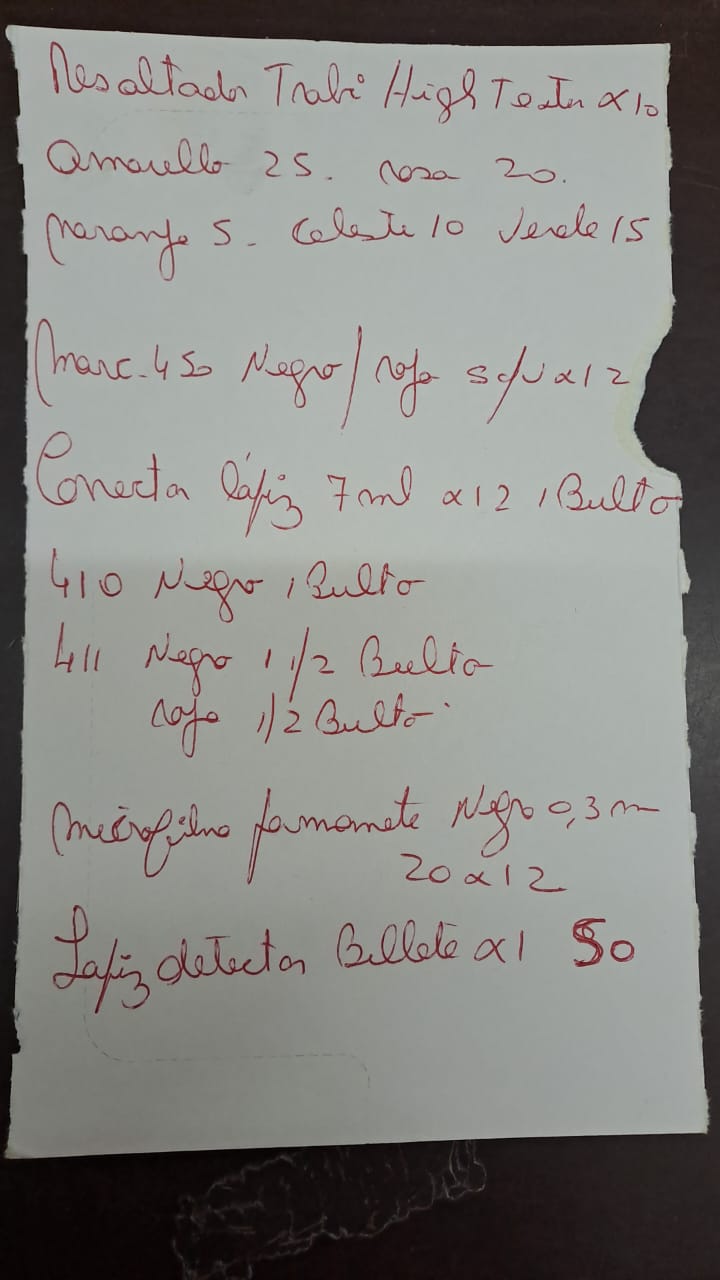 Resaltador Trabi High Texter x10
Amarillo 25. rosa 20.
naranja 5. Celeste 10 Verde 15
Marc. 450 Negro/rojo 5 c/u x12
Corrector lápiz 7ml x12 1 Bulto
410 Negro 1 Bulto
411 Negro 1 1/2 Bulto
rojo 1/2 Bulto
permanete Negro 0,3 m
20 x 12
Lapiz detector Billete x1 50